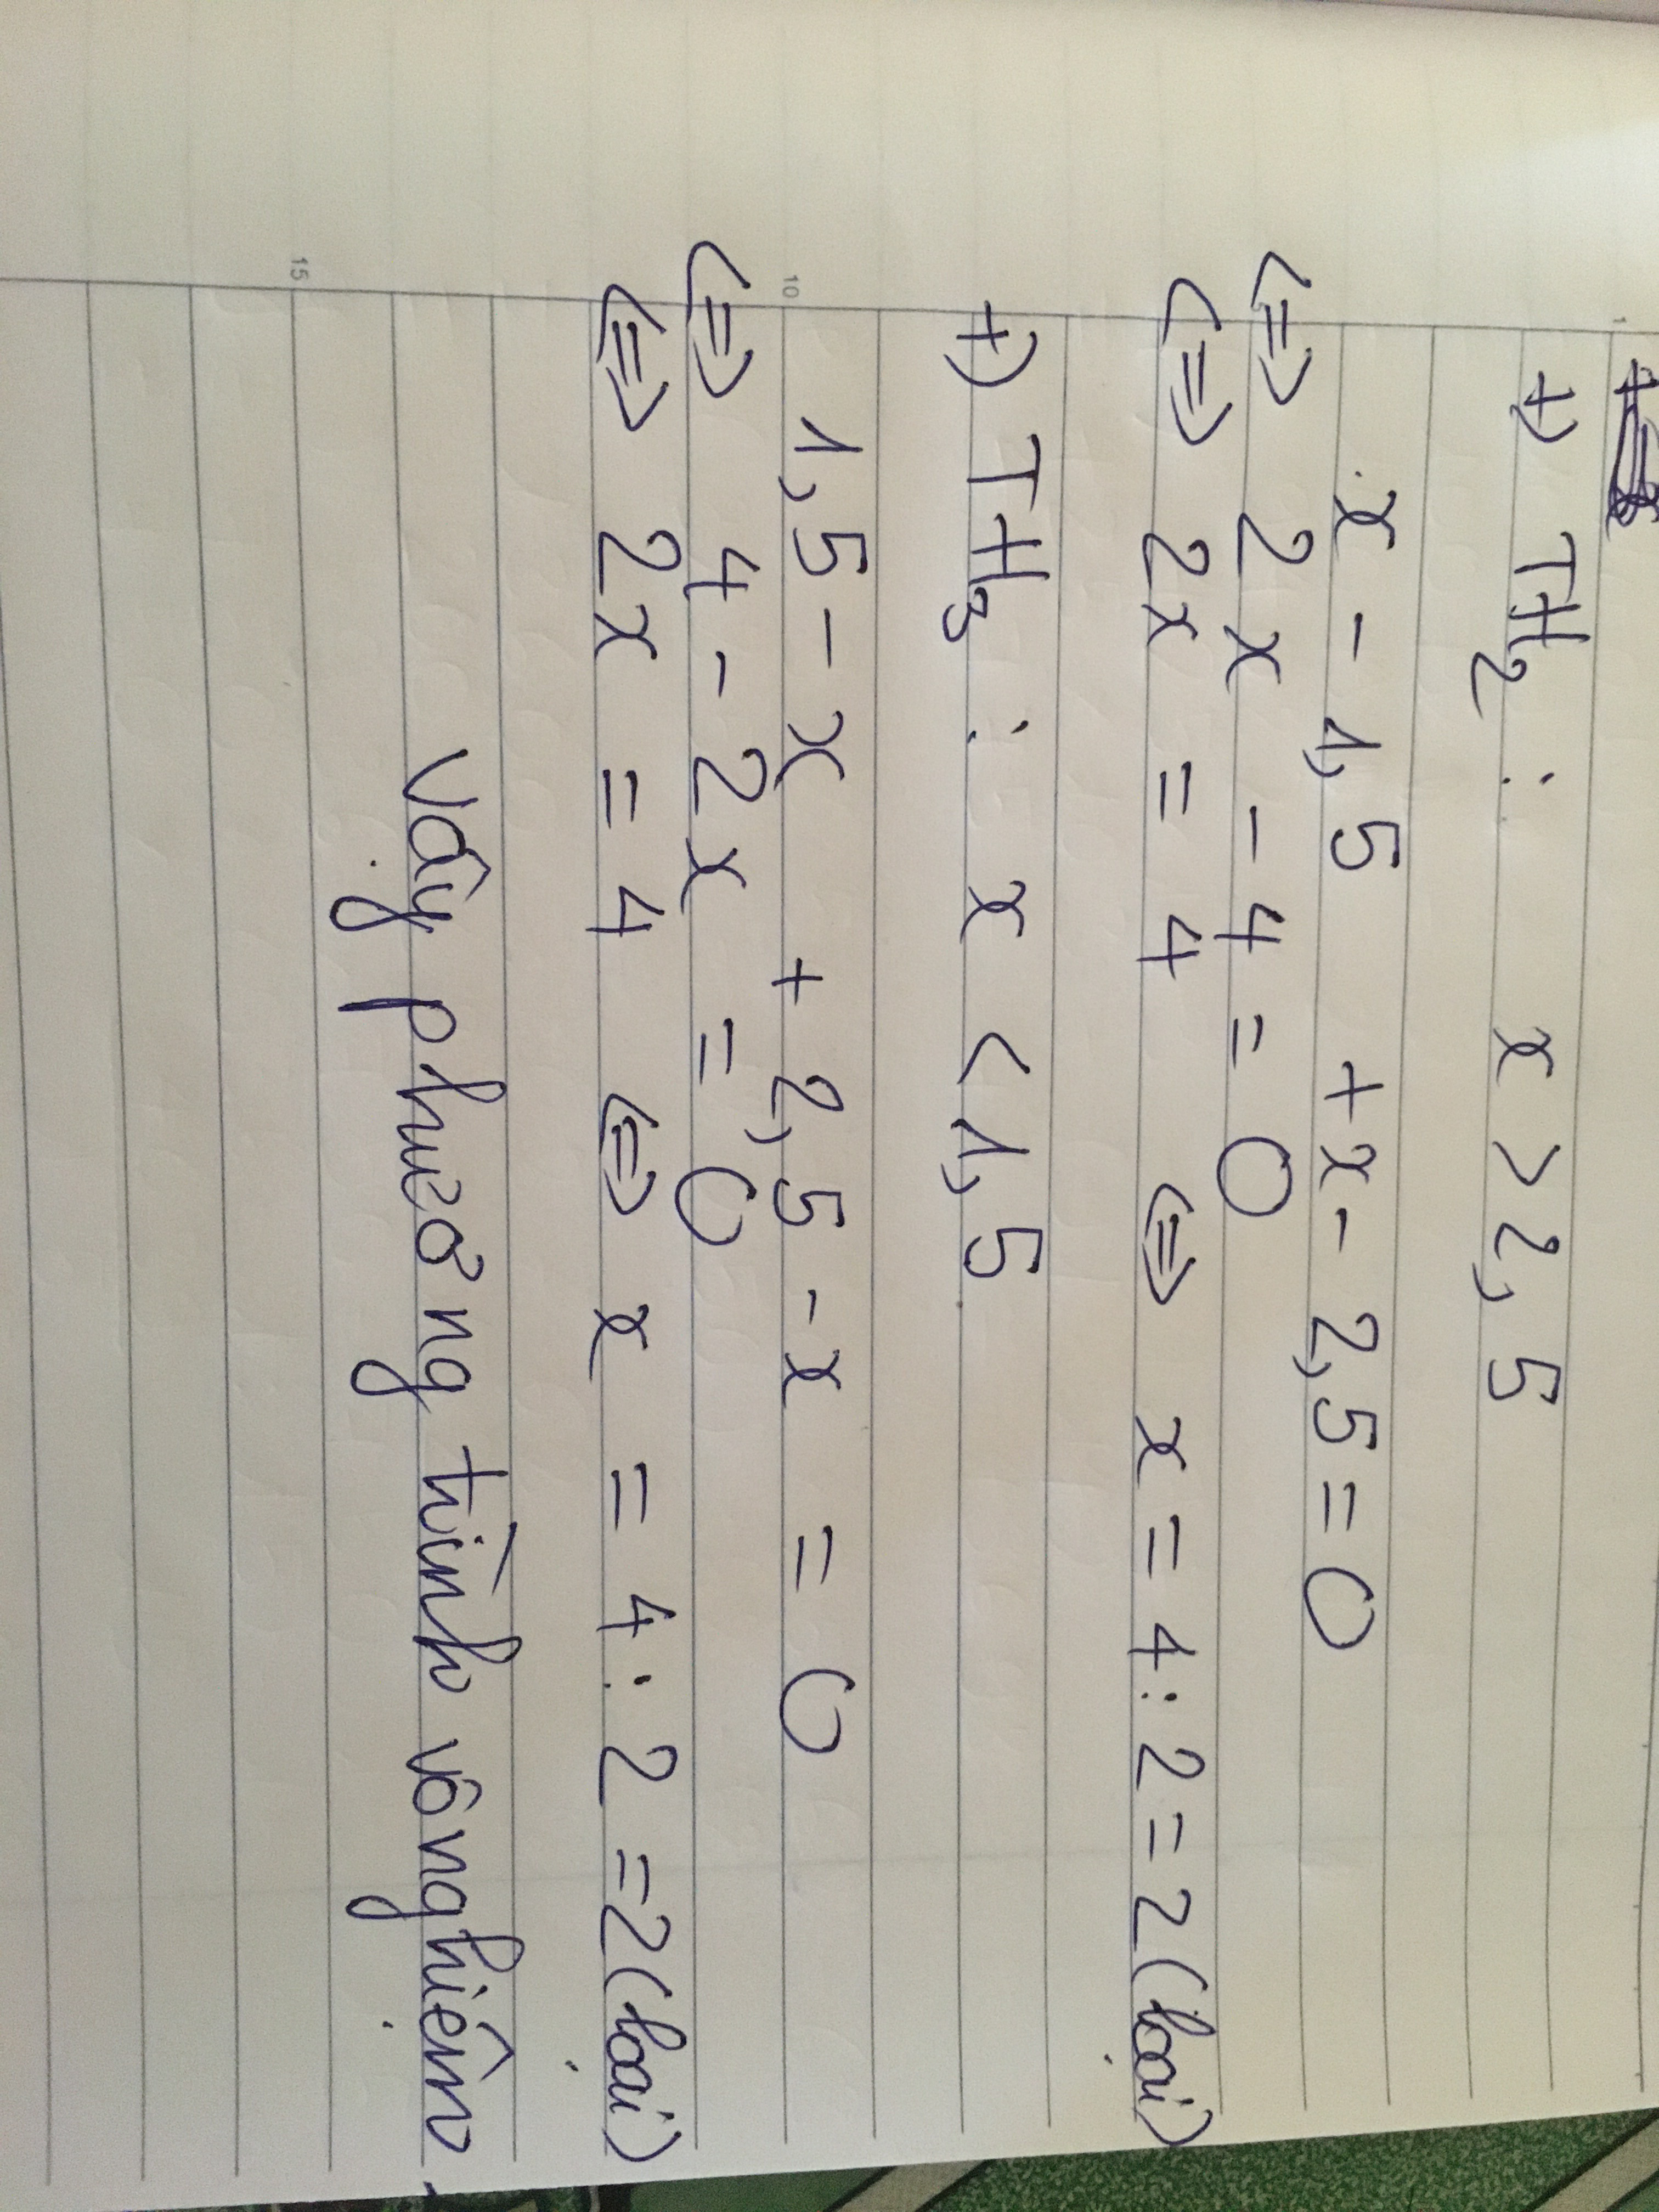 +) TH2 : x > 2,5
x - 1,5 + x - 2,5 = 0
<=> 2x - 4 = 0
<=> 2x = 4 <=> x = 4 : 2 = 2 (loại)
+) TH3 : x < 1,5
10
1,5 - x + 2,5 - x = 0
<=> 4 - 2x = 0
<=> 2x = 4 <=> x = 4 : 2 = 2 (loại)
Vậy phương trình vô nghiệm.
15